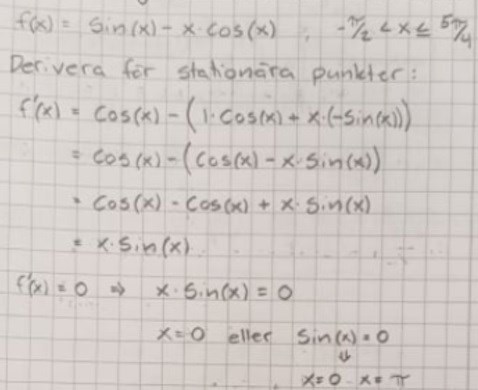 f(x) = Sin(x) - x·cos(x) , -π/2 < x ≤ 5π/4
Derivera för stationära punkter:
f'(x) = Cos(x) - (1·Cos(x) + x·(-Sin(x)))
= cos(x) - (cos(x) - x·Sin(x))
= Cos(x) - Cos(x) + x·Sin(x)
= x·Sin(x)
f'(x) = 0 ⇒ x·Sin(x) = 0
x = 0 eller Sin(x) = 0
⇓
x = 0 x = π